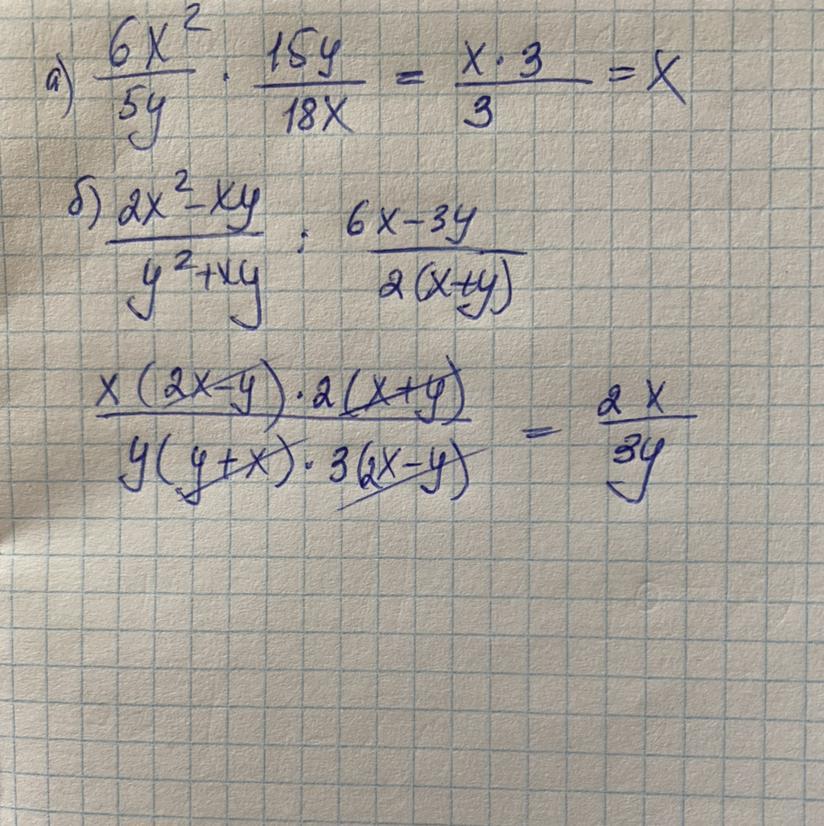 а) 6x²/5y · 15y/18x = x·3/3 = x
б) 2x²-xy/y²+xy : 6x-3y/2(x+y)
x(2x-y)·2(x+y)/y(y+x)·3(2x-y) = 2x/3y